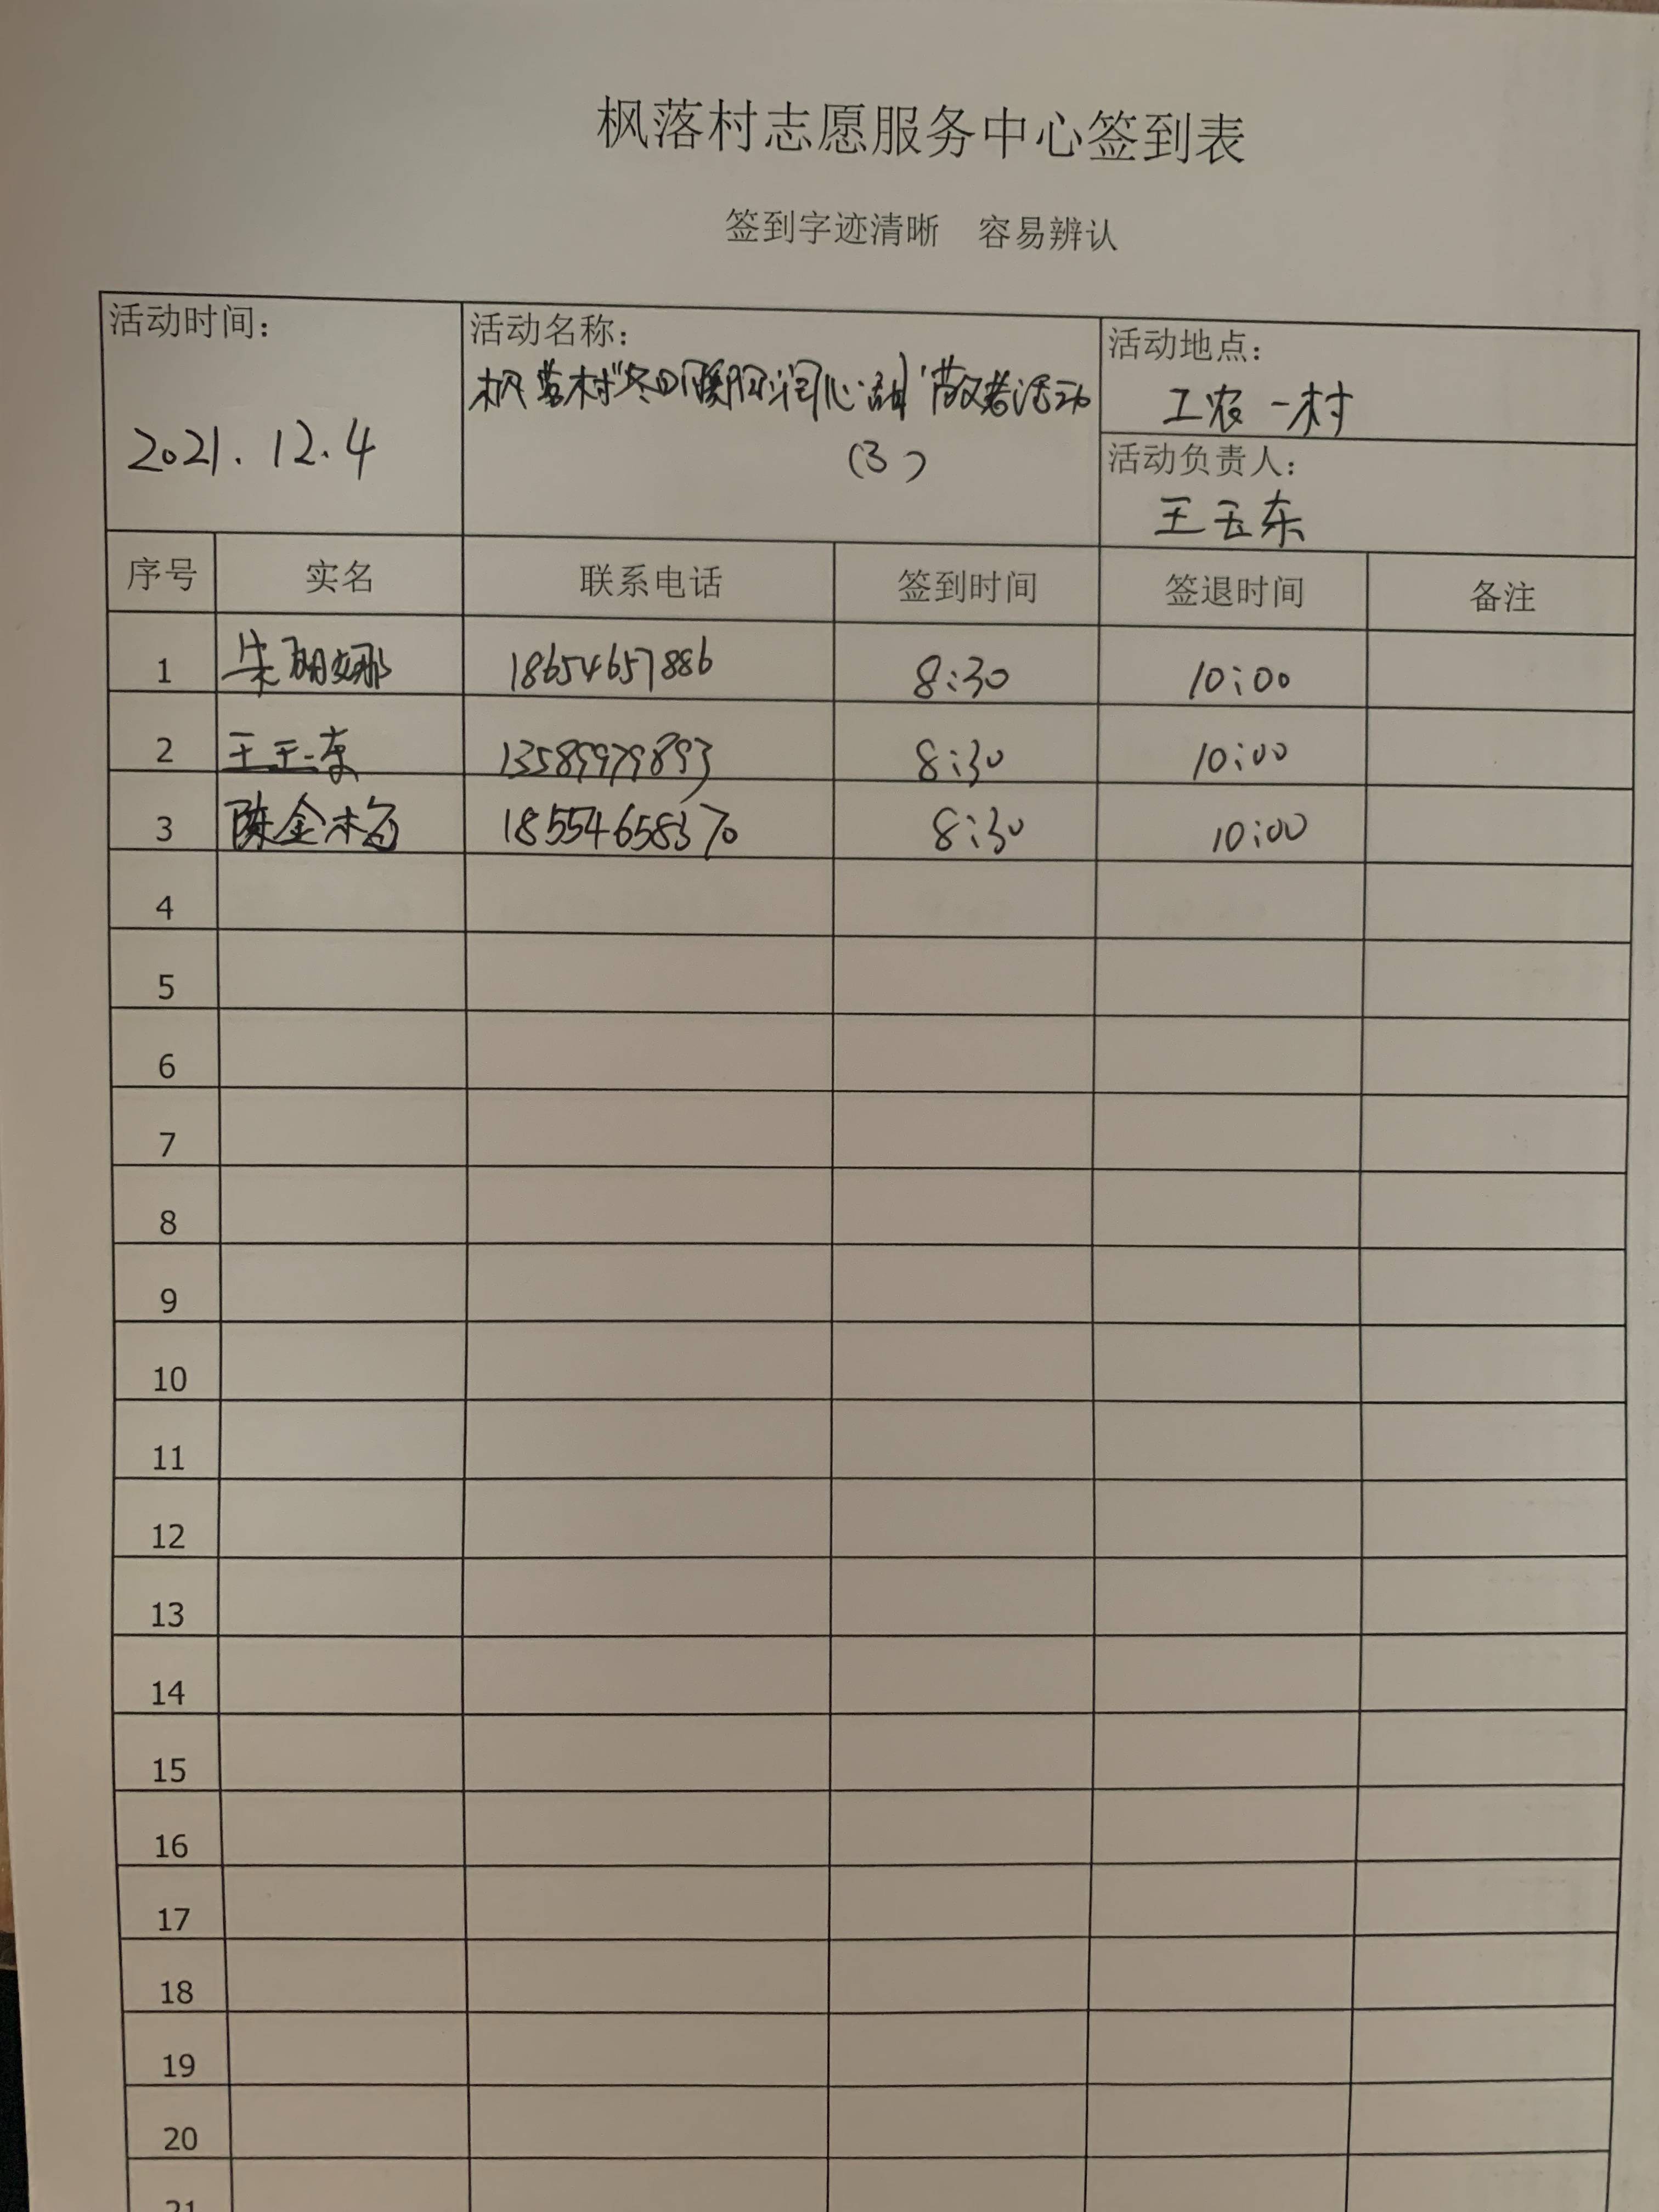 枫落村志愿服务中心签到表
签到字迹清晰 容易辨认
活动时间：
2021.12.4
活动名称：
枫落村"冬日暖阳润心甜"敬老活动
（3）
活动地点：
工农一村
活动负责人：
王玉东
序号 实名 联系电话 签到时间 签退时间 备注
1 朱丽娜 18654657886 8:30 10:00
2 王玉东 13589979893 8:30 10:00
3 陈金梅 18554658370 8:30 10:00
4
5
6
7
8
9
10
11
12
13
14
15
16
17
18
19
20
21